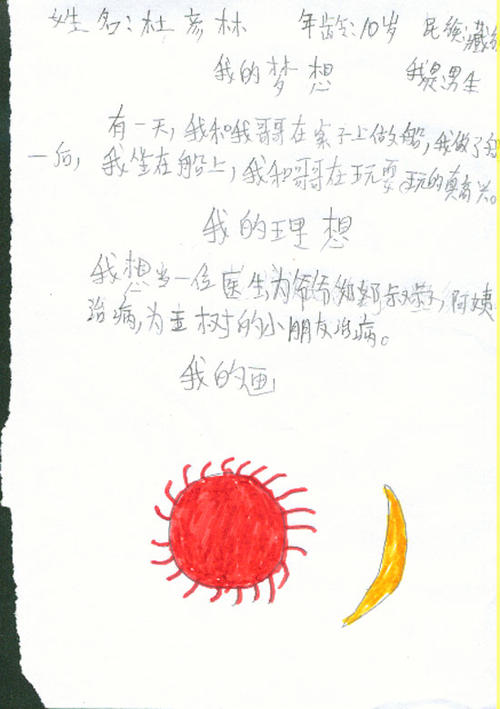 姓名:杜彦林 年龄:10岁 民族:藏
我的梦想 我是男生
有一天,我和我哥哥在桌子上做船,我做了
一后,我坐在船上,我和哥哥在玩耍玩的真高兴。
我的理想
我想当一位医生为爷爷奶奶叔叔,阿姨
治病,为玉树的小朋友治病。
我的画